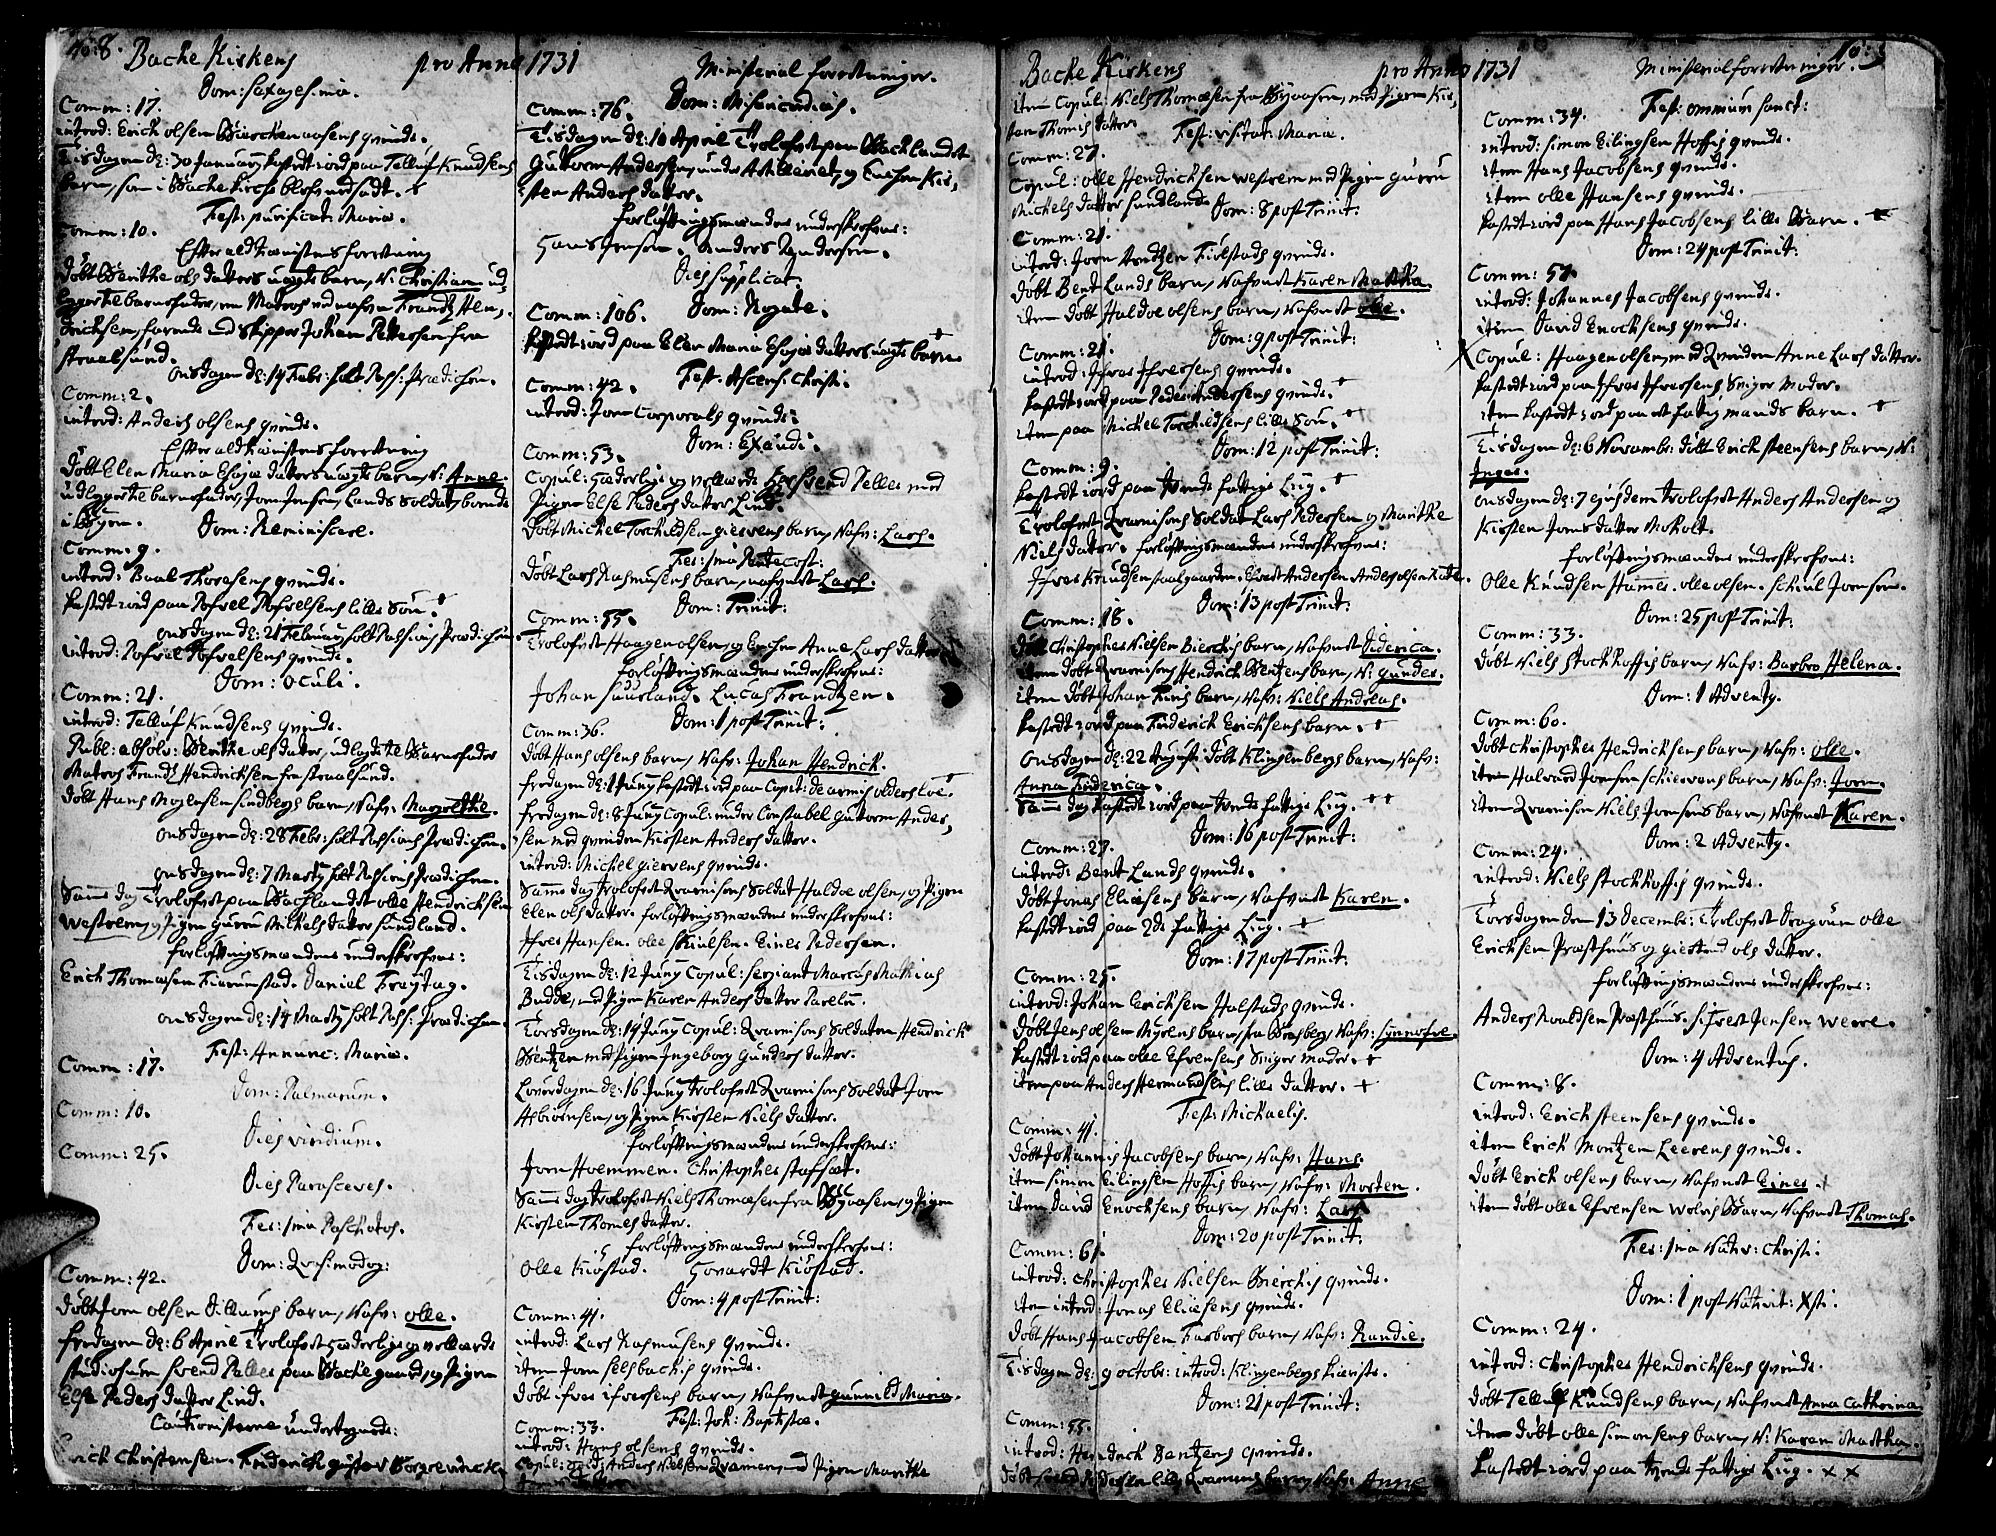 468. Bache Kirkens pro Anno 1731 Ministerial forretninger.
Dom: sexagesima.
Comm: 17.
introd: Erick olsen qvinde.
Tisdagen d: 30 January kastedt iord paa Telluf Knudsens
barn, som i Bache Kirche blef nedsadt. +
Fest: purificat: Mariæ.
Comm: 10.
Effter aldt tienistens forretning
døbt Berithe ols datters uægte barn, N: Christian ud,
lagte til barnefader, en Matros ved nafn Frandtz Hen,
drichsen, farende med Skipper Johan Pettersen fra
straalsund.
onsdagen d: 14 Febr: holt Pass: Prædichen.
Comm: 2.
introd: Anders olsens qvinde.
Effter aldt tienistens forretning
døbt Elen Maria datters uægte barn, N: Anne.
udlagte til barnefader, Jon Jensen, Lands Soldat, boende
i Byen.
Dom: Reminiscere.
Comm: 9.
introd: Baal Thoresens qvinde.
kastedt iord paa Pofvel Pofvelsens lille Søn. +
onsdagen d: 21 February holt Passions Prædichen
introd: Pofvel Pofvelsens qvinde.
Dom: oculi.
Comm: 21.
introd: Telluf Knudsens qvinde.
Publ: absolv: Berithe olsdatter, udlagde til Barnefader
Matros Frandtz Hendrichsen fra straalsund.
døbt Hans Mogensen Lindbergs barn, Nafv: Magrethe.
onsdagen d: 28 Febr: holt Passions Prædichen.
onsdagen d: 7 Marty holt Passions Prædichen.
Samme dag Trolofvet paa Bachlandet olle Hendrichsen
Westrem, og Pigen Guru Mickels datter Sundland.
forlofftningsmændene underskrefvne:
Erick Thomæsen Fierrumstad. Daniel Freytag.
onsdagen d: 14 Marty holt Pass: Prædichen.
Fest: Annunc: Mariæ.
Comm: 17.
Dom: Palmarum.
Comm: 10.
Dies viridium.
Comm: 25.
Dies Parasceves.
Fer: 1ma Paschatos.
Dom: Qvasimodog:
Comm: 42.
døbt Jon olsen barn, Nafv: olle.
fredagen d: 6 April Trolofvet hæderlige og vellærde
studiosum Svend Pelles paa Bachegaard, og Pigen
Else Peders datter Lind.
Cautionisterne undertegnede:
Erick Christensen. Friderich gustav Borgrevinck.
Comm: 76. Dom: Misericordias.
Tisdagen d: 10 April Trolofvet paa Bachlandet
Guttorm Andersen, under Artilleriet, og Enchen Kir,
sten Anders datter.
forlofftningsmændene underskrefvne:
Hans Jensen. Anders Andersen.
Dies supplicat.
Comm: 106. Dom: Rogate.
kastedt iord paa Elen Maria datters uægte barn. +
Comm: 42. Fest: Ascens: Christi.
introd: Jon Corporals qvinde.
Dom: Exaudi.
Comm: 53.
Copul: hæderlige og vellærde Svend Pelles med
Pigen Else Peders datter Lind.
døbt Michel Torchildsen barn, Nafv: Lars.
Fer: 1ma Pentecost:
døbt Lars Rasmusens barn, nafvnet Lars.
Dom: Trinit:
Comm: 55.
Trolofvet Haagen olsen, og Enchen Anne Lars datter
forlofftningsmændene underskrefvne:
Johan Suurland. Lucas Frandtzen.
Dom: 1 post Trinit:
Comm: 36.
døbt Hans olsens barn, Nafv: Johan Hendrick.
fredagen d: 1 Juny kastedt iord paa Capit: de arnis +
fredagen d: 8 Juny Copul: under Constabel Guttorm Ander,
sen med qvinden Kirsten Anders datter.
introd: Michel qvinde.
Samme dag trolofvet Qvarnisons Soldat Haldoe olsen, og Pigen
Elen ols datter. forlofftningsmændene underskrefvne:
Ifver Hansen. olle Skiulsen. Einer Pedersen.
Tisdagen d: 12 Juny Copul: sergiant Marcus Mathias
Budde, med Pigen Karen Anders datter Parelii.
Torsdagen d: 14 Juny Copul: Qvarnisons Soldaten Hendrick
Bentzen med Pigen Ingeborg Gunders datter.
Løverdagen d: 16 Juny trolofvet Qvarnisons Soldat Jon
Asbiørnsen, og Pigen Kirsten Niels datter.
forlofftningsmændene underskrefvne:
Jon Hoemmen. Christopher stafset.
Samme dag trolofvet Niels Thomæsen fra Byaasen, og Pigen
Kirsten Thomes datter.
forlofftningsmændene underskrefvne:
Olle Kiøstad. Havardt Kiøstad.
Dom: 4 post Trinit:
Comm: 41.
introd: Lars Rasmusens qvinde.
item Jon Selsbachs qvinde.
døbt Ifver Ifversens barn, Nafvnet gunnild Maria.
Comm: 33. Fest: Joh: Baptistæ.
introd: Hans olsens qvinde.
Copul: Anders Nielsen Qvamen, med Pigen Marithe

Bache Kirkens pro Anno 1731 Ministerial forretninger. 469
item Copul: Niels Thomæsen fra Byaasen, med Pigen Kir,
sten Thomes datter.
Fest: visitat: Mariæ.
Comm: 27.
Copul: olle Hendrichsen westrem med Pigen guru
Michels datter Sundland. Dom: 8 post Trinit:
Comm: 21.
introd: Jon Arntzen Fiølstads qvinde.
døbt Bent Lands barn, Nafvnet Karen Martha.
item døbt Haldoe olsens barn, Nafvnet olle.
Dom: 9 post Trinit:
Comm: 21.
introd: Ifver Ifversens qvinde.
kastedt iord paa Peder Andersens qvinde. +
item paa Michel Torchildsens lille Søn. +
Dom: 12 post Trinit:
Comm: 9.
kastedt iord paa tvende fattige Liig. +
Trolofvet Qvarnisons Soldat Lars Pedersen og Marithe
Niels datter. forlofftningsmændene underskrefvne:
Ifver Knudsen staalgaarden. Evert Andersen. Anders olsen
Dom: 13 post Trinit:
Comm: 18.
døbt Christopher Nielsen Bierchs barn, Nafvnet Diderica.
item døbt Qvarnisons Hendrick Bentzens barn, N: gunder.
item døbt Johan Friis barn, Nafv: Niels Andreas.
kastedt iord paa Friderich Erichsens barn. +
onsdagen d: 22 Augusti døbt Klingenbergs barn, Nafv:
Anna Friderica.
Samme dag kastedt iord paa tvende fattige Liig. + +
Dom: 16 post Trinit:
Comm: 27.
introd: Bent Lands qvinde.
døbt Jonas Eliæsens barn, Nafvnet Karen.
kastedt iord paa 2de fattige Liig. +
Dom: 17 post Trinit:
Comm: 25.
introd: Johan Erichsen Halstads qvinde.
døbt Jens olsen Myrens barn, fra Nafv: Synnøfve.
kastedt iord paa olle Efvensens Sviger moder. +
item paa Anders Hermandsens lille datter. +
Fest: Michaelis.
Comm: 41.
døbt Johannis Jacobsens barn, Nafv: Hans
item Simon Eilingsen Hoffis barn, Nafv: Morten.
item David Enochsens barn, Nafv: Lars
Dom: 20 post Trinit:
Comm: 61.
introd: Christopher Nielsen Bierchis qvinde.
item introd: Jonas Eliæsens qvinde.
døbt Hans Jacobsen Farbors barn, Nafv: Randie.
Tisdagen d: 9 octobr: introd: Klingenbergs kieriste.
Dom: 21 post Trinit:
Comm: 55.
introd: Hendrick Bentzens qvinde.
døbt barn, Nafv: Anne
Fest: omnium sanct:
Comm: 34.
introd: Simon Eilingsen Hoffis qvinde.
item Hans Jacobsens qvinde.
item olle Hansens qvinde.
kastedt iord paa Hans Jacobsens lille Barn. +
Dom: 24 post Trinit:
Comm: 51.
introd: Johannes Jacobsens qvinde.
item David Enochsens qvinde.
X Copul: Haagen olsen, med Qvinden Anne Lars datter.
kastedt iord paa Ifver Ifversens Sviger Moder.
item kastedt iord paa et fatig mands barn. +
Tisdagen d: 6 Novembr: døbt Erick steensens barn, N:
Inger.
onsdagen d: 7 ejusdem trolofvet Anders Andersen og
Kirsten Jons datter Moholt.
forlofftningsmændene underskrefvne:
Olle Knudsen Hammer. olle olsen. Schiul Joensen.
Dom: 25 post Trinit:
Comm: 33.
døbt Niels Stockhoffis barn, Nafv: Barbro Helena.
Dom: 1 Adventy.
Comm: 60.
døbt Christopher Hendrichsens barn, Nafv: olle.
item Halvard Joensen barn, Nafv: Joen.
item Qvarnison Niels Joensens barn, Nafvnet Karen.
Dom: 2 Adventy.
Comm: 24.
introd: Niels Stockhoffis qvinde.
Torsdagen den 13 Decembr: Trolofvet Dragoun olle
Erichsen Præsthuus og giertrud ols datter.
forlofftningsmændene underskrefvne:
Anders Præsthuus. Sifvert Jensen Weere.
Dom: 4 Adventus.
Comm: 8.
introd: Erick Steensens qvinde.
item Erick Mortzen Leerens qvinde.
døbt Erick olsens barn, Nafvnet Einer.
item døbt olle Efvensen Barn, Nafvnet Thomas.
Fer: 1ma Nativ: Christi.
Dom: 1 post Nativit: Xsti.
Comm: 24.
introd: Christopher Hendrichsens qvinde.
døbt Telluf Knudsens barn, Nafvnet Anna Cathrina.
item døbt olle Simonsens barn, N: Karen Martha.
kastedt iord paa tvende fattige Liig. x x